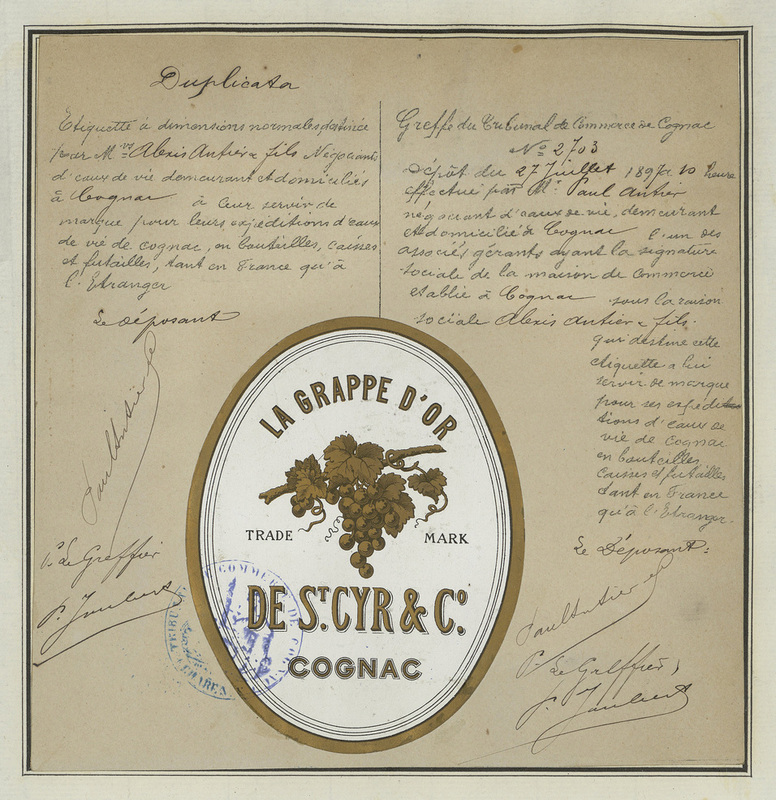 Duplicata
Etiquette à dimensions normales, destinée
par MM. Alexis Antier & fils Négociants
d'eaux de vie demeurant et domiciliés
à Cognac à leur servir de
marque pour leurs expéditions d'eaux
de vie de cognac, en bouteilles, caisses
et futailles, tant en France qu'à
l'Etranger
Le déposant
Paul Antier
P. Le Greffier
P. Joubert
Greffe du Tribunal de Commerce de Cognac
No 2703
Dépôt du 27 Juillet 1897 à 10 heure
effectué par Mr. Paul Antier
négociant d'eaux de vie, demeurant
et domicilié à Cognac l'un des
associés, gérants ayant la signature
sociale de la maison de commerce
établie à Cognac sous la raison
sociale Alexis Antier & fils.
qui destine cette
étiquette à lui
servir de marque
pour ses expédi-
tions d'eaux de
vie de Cognac
en bouteilles
caisses et futailles
tant en France
qu'à l'Etranger.
Le Déposant:
Paul Antier
P. Le Greffier,
P. Joubert
LA GRAPPE D'OR
TRADE MARK
DE ST. CYR & Co.
COGNAC
TRIBUNAL COMMERCE DE COGNAC